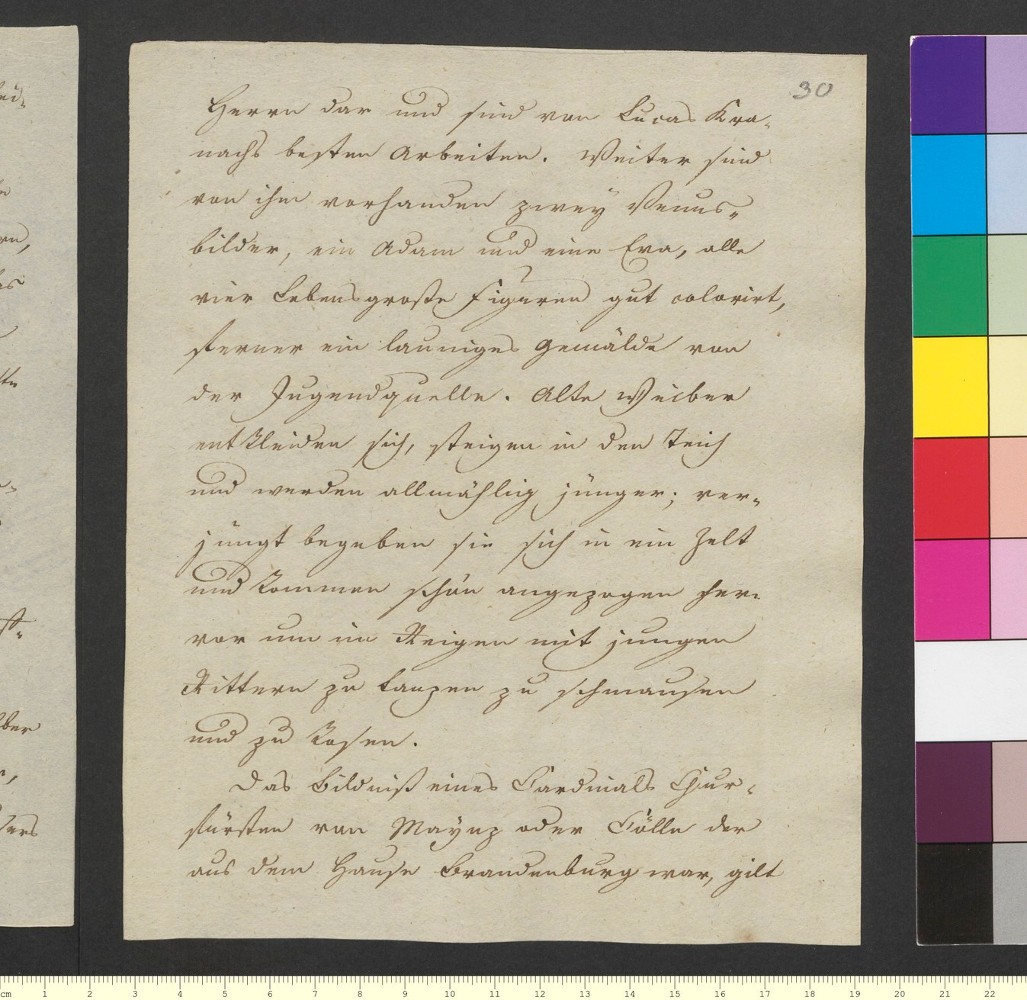 30
Herrn dar und sind von Lucas Kra-
nachs besten Arbeiten. Weiter sind
von ihm vorhanden zwey Venus-
bilder, ein Adam und eine Eva, alle
vier Lebensgroße Figuren gut colorirt,
ferner ein launiges Gemälde von
der Jugendquelle. Alte Weiber
entkleiden sich, steigen in den Teich
und werden allmählig jünger; ver-
jüngt begeben sie sich in ein Zelt
und kommen schön angezogen her-
vor um im Reigen mit jungen
Rittern zu tanzen zu schmausen
und zu kosen.
Das Bildniß eines Cardinals Chur-
fürsten von Maynz oder Cölln der
aus dem Hause Brandenburg war, gilt